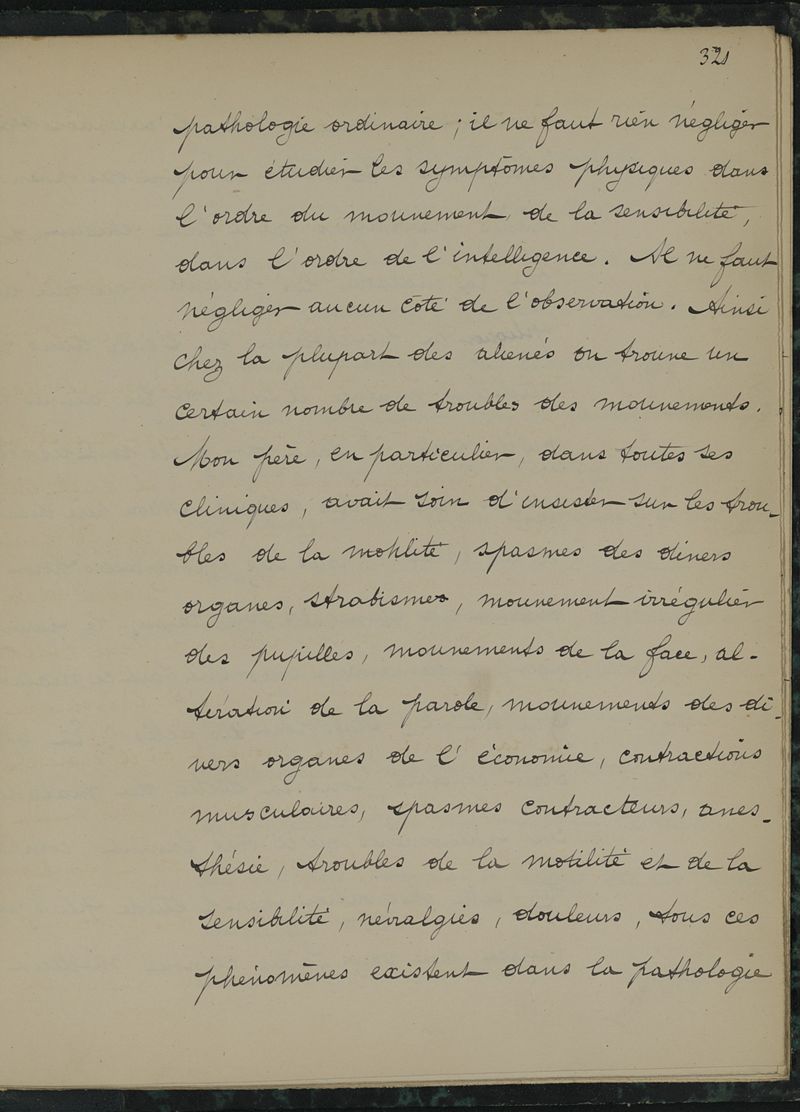 321
pathologie ordinaire ; il ne faut rien négliger
pour étudier les symptômes physiques dans
l'ordre du mouvement, de la sensibilité,
dans l'ordre de l'intelligence. Il ne faut
négliger aucun côté de l'observation. Ainsi
chez la plupart des aliénés on trouve un
certain nombre de troubles des mouvements.
Mon père, en particulier, dans toutes ses
cliniques, avait soin d'insister sur les trou-
bles de la motilité, spasmes des divers
organes, strabismes, mouvement irrégulier
des pupilles, mouvements de la face, al-
tération de la parole, mouvements des di-
vers organes de l'économie, contractions
musculaires, spasmes contracteurs, anes-
thésie, troubles de la motilité et de la
sensibilité, névralgies, douleurs, tous ces
phénomènes existent dans la pathologie